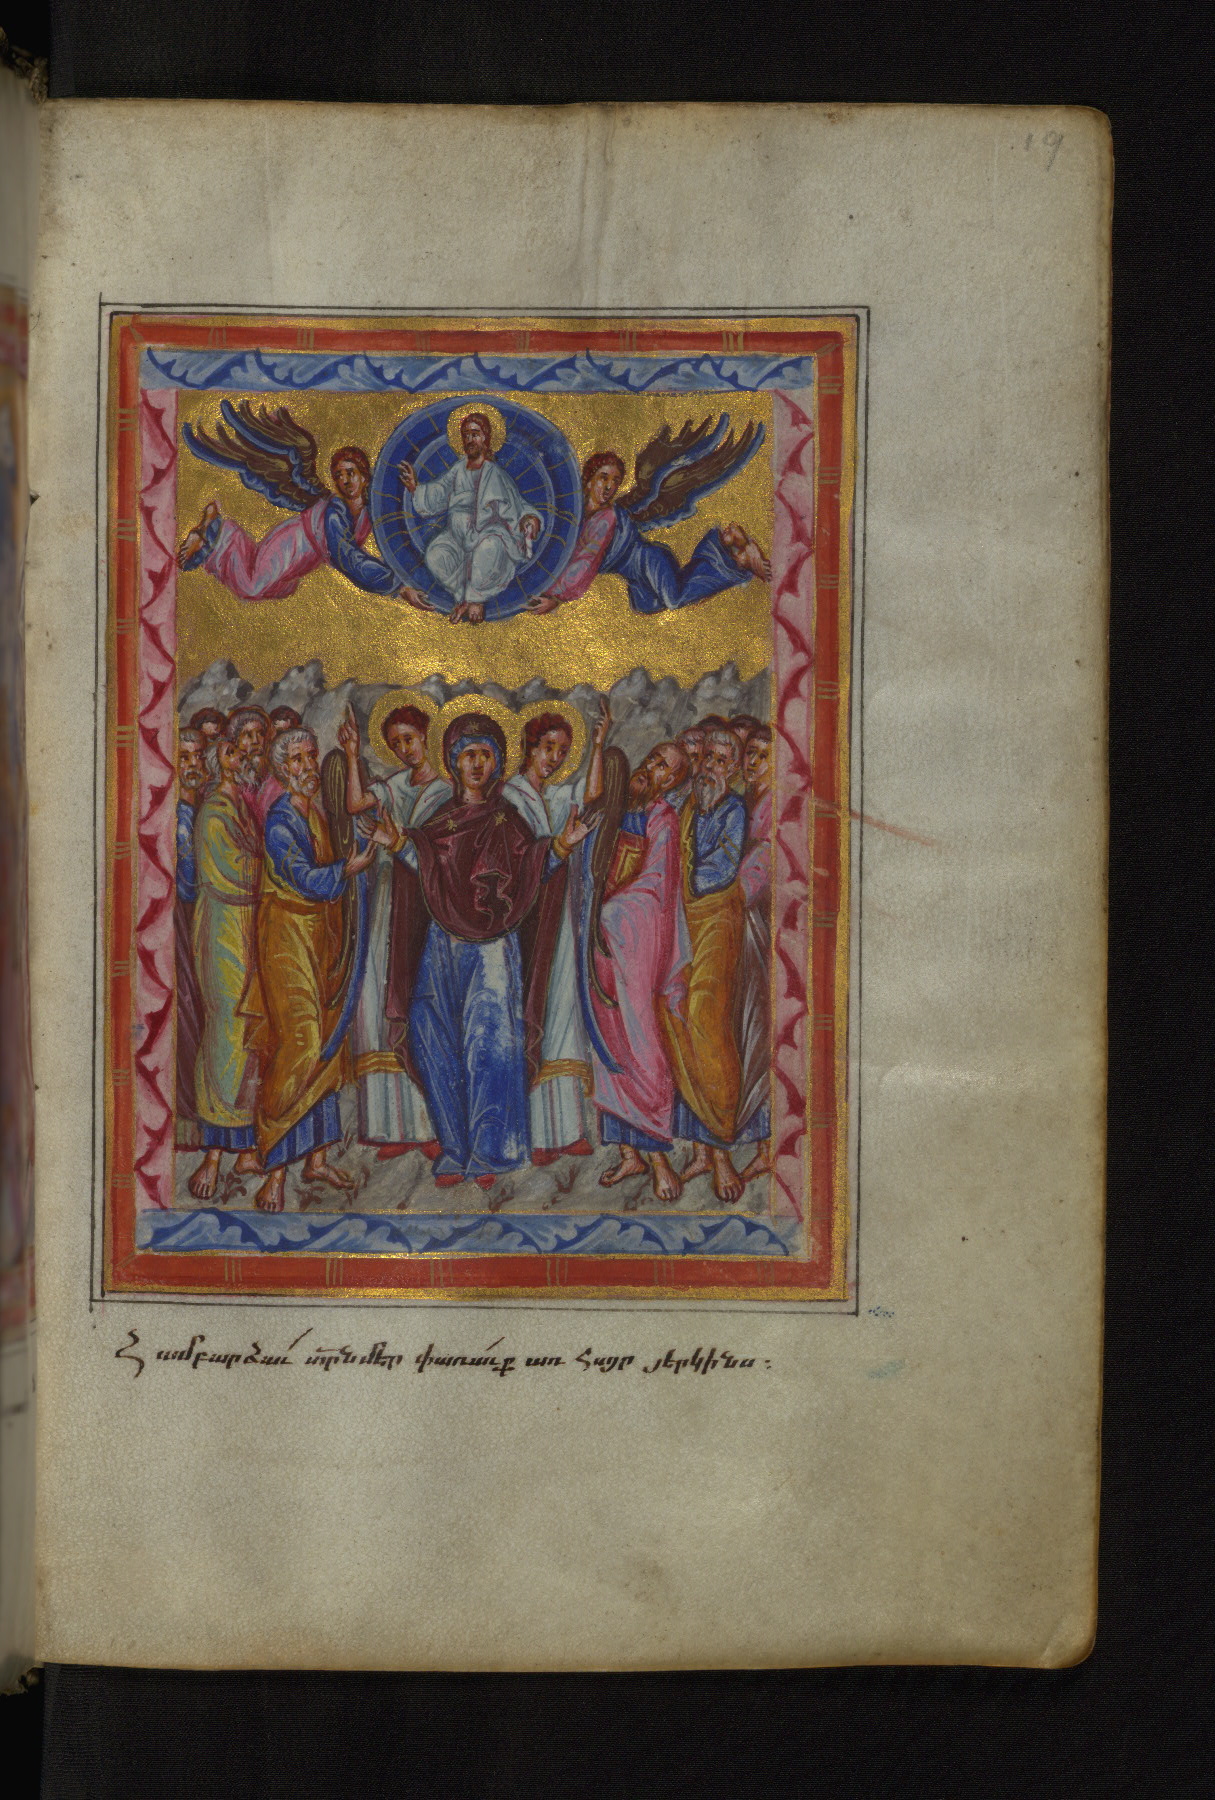 19
Համբարձաւ տրն մեր փառաւք առ Հայր յերկինս ։